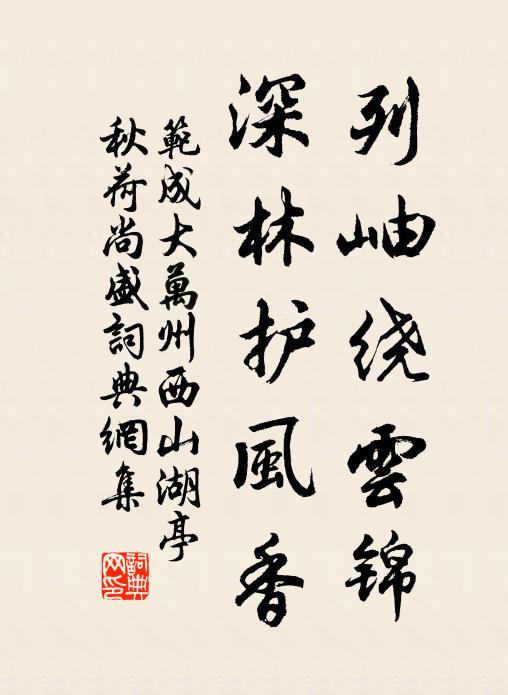 列岫绕雲锦
深林护風香
範成大萬州西山湖亭
秋荷尚盛詞典網集
詞典
网印